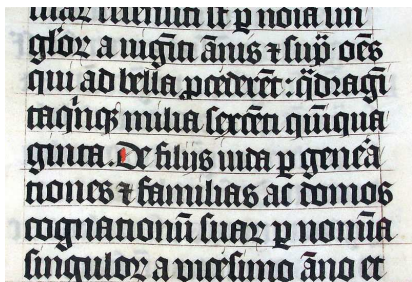 suaꝝ recensiti sūt p noīa sin
głoꝝ a uiginti ānis ⁊ sup̄· oēs
qui ad bella ꝓcederēt : q̄dragī
taqͥnqꝫ milia sexcēti quīqua
ginta. De filijs iuda p gene͛a
tiones ⁊ familias ac domos
cognationū suaꝝ p nomīa
singuloꝝ a uicesimo āno et